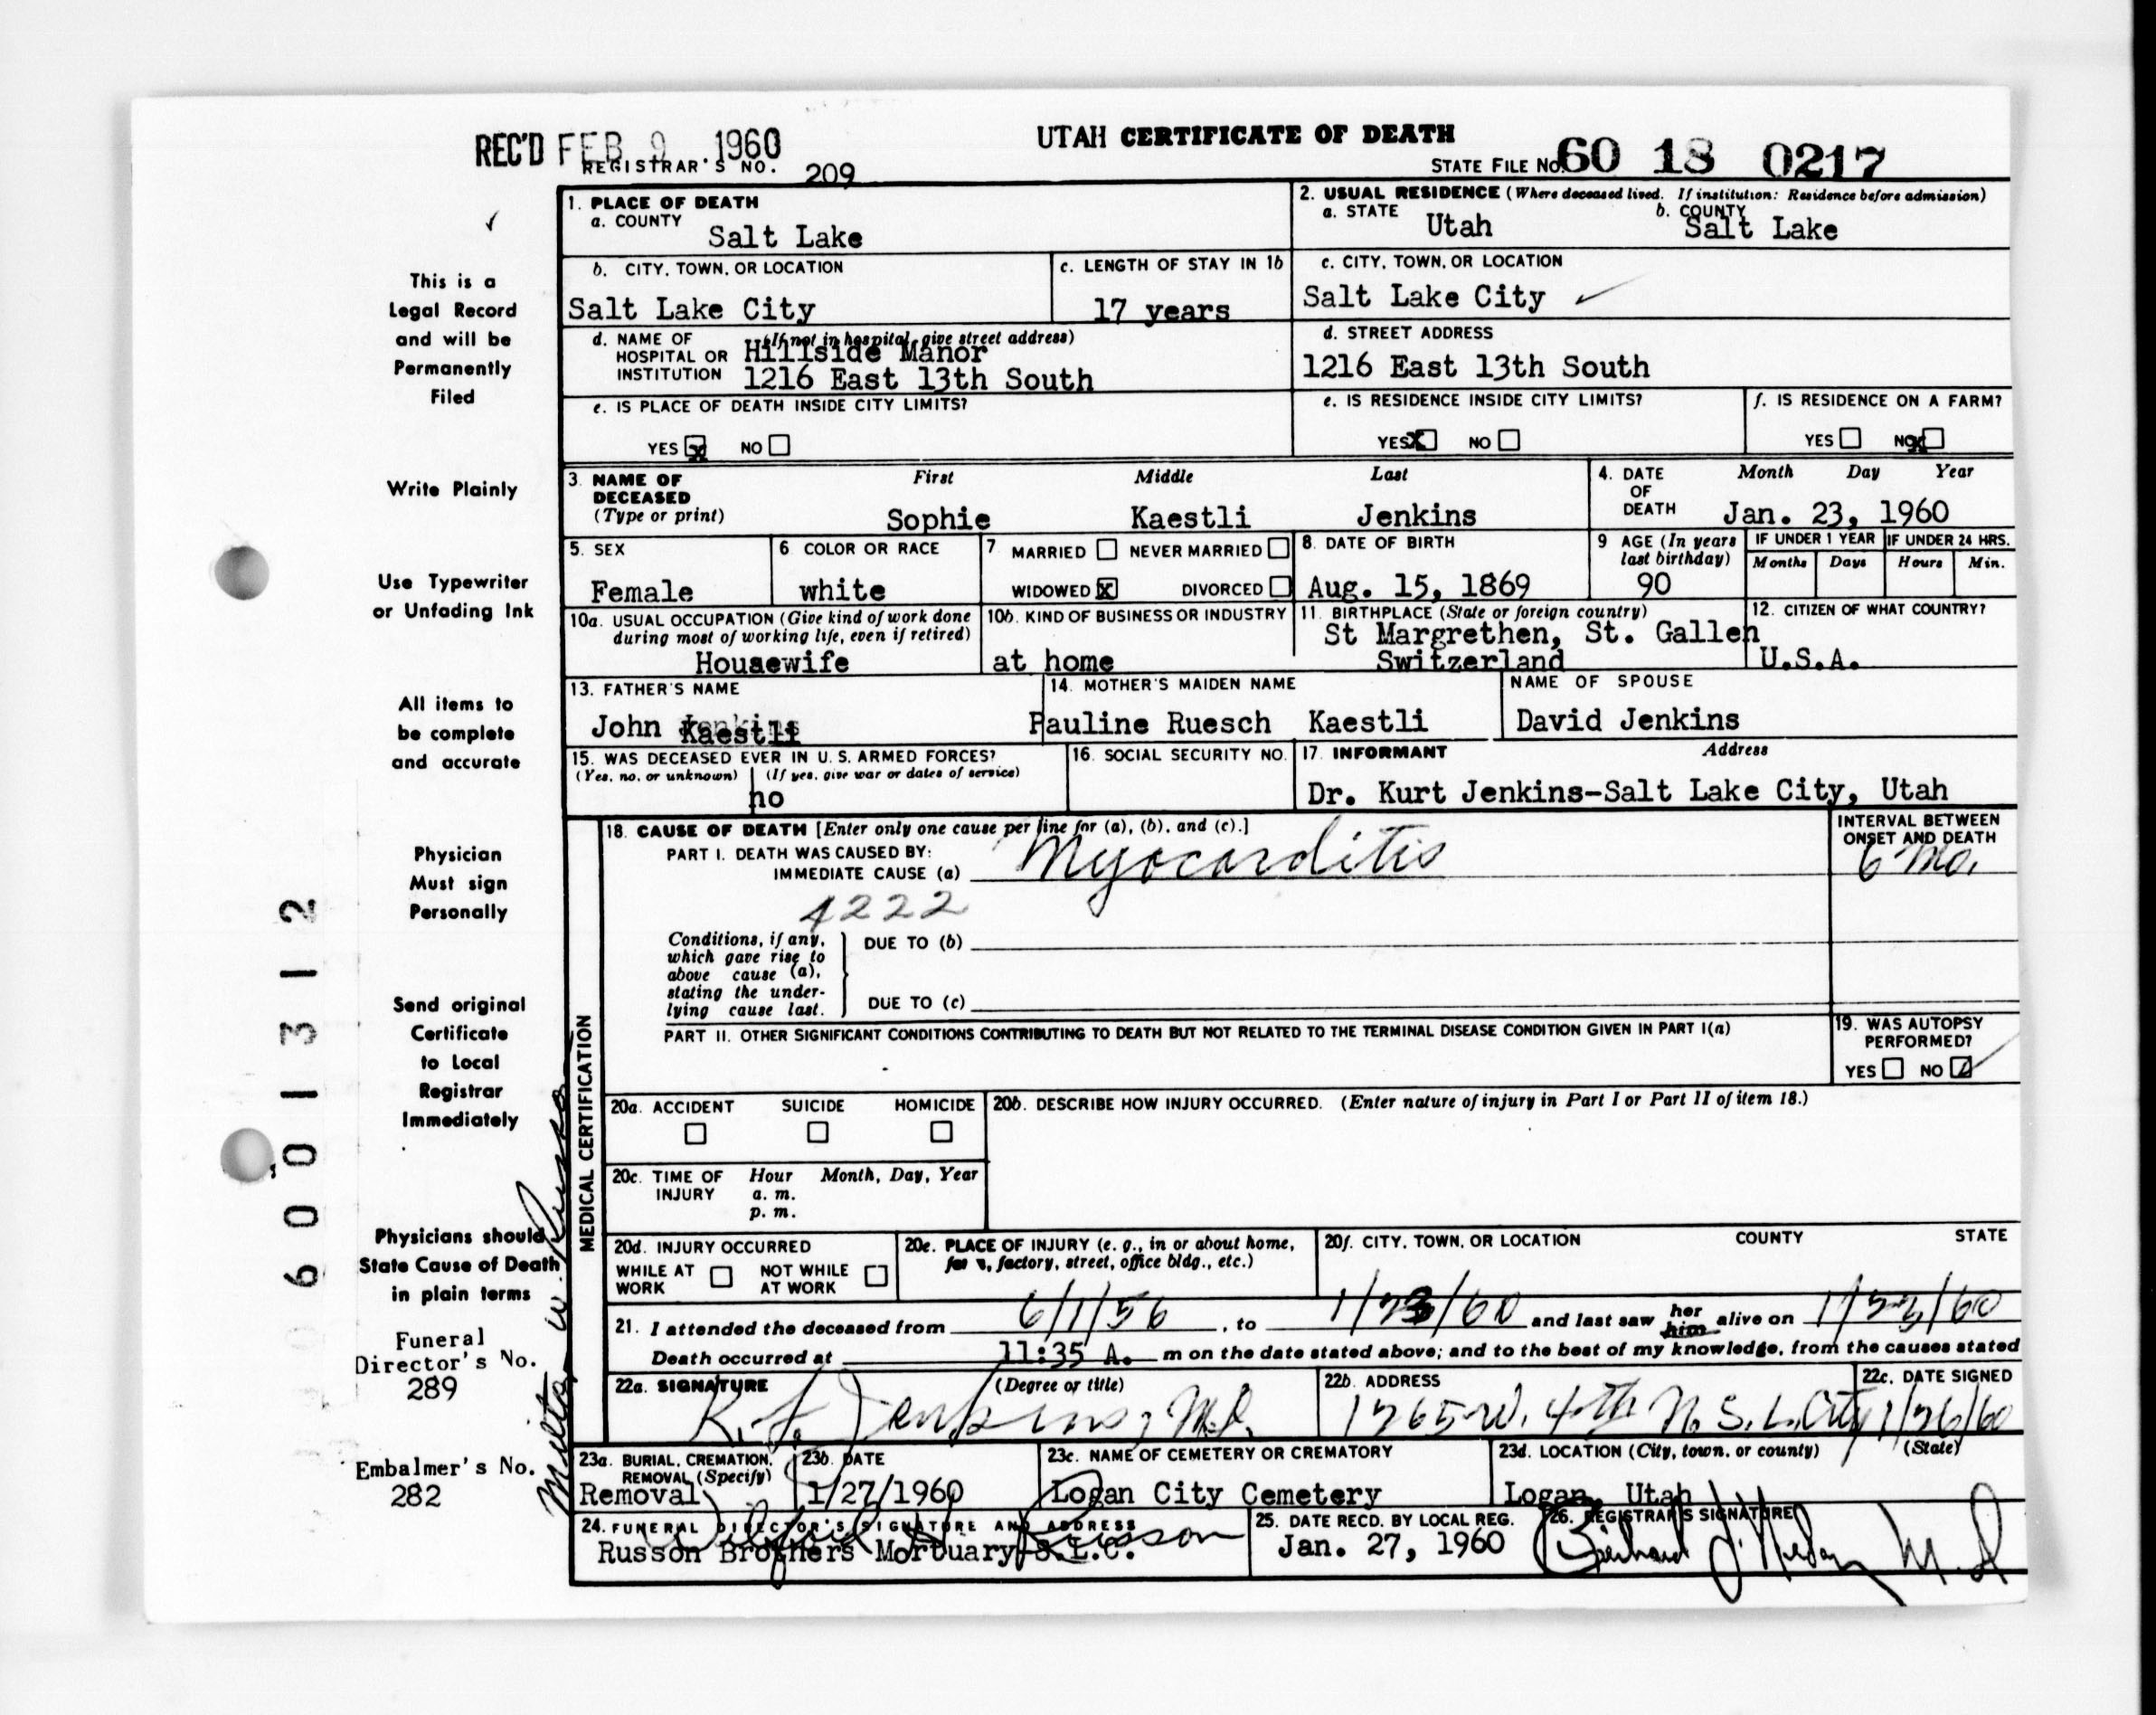 REC'D FEB 9 . 1960
UTAH CERTIFICATE OF DEATH
REGISTRAR'S NO. 209
STATE FILE NO. 60 18 0217
This is a
Legal Record
and will be
Permanently
Filed
Write Plainly
Use Typewriter
or Unfading Ink
All items to
be complete
and accurate
Physician
Must sign
Personally
Send original
Certificate
to Local
Registrar
Immediately
Physicians should
State Cause of Death
in plain terms
Funeral
Director's No.
289
Embalmer's No.
282
6001312
Milton W.
1. PLACE OF DEATH
a. COUNTY
Salt Lake
2. USUAL RESIDENCE (Where deceased lived. If institution: Residence before admission)
a. STATE Utah b. COUNTY Salt Lake
b. CITY, TOWN, OR LOCATION
Salt Lake City
c. LENGTH OF STAY IN 1b
17 years
c. CITY, TOWN, OR LOCATION
Salt Lake City
d. NAME OF (If not in hospital, give street address)
HOSPITAL OR Hillside Manor
INSTITUTION 1216 East 13th South
d. STREET ADDRESS
1216 East 13th South
e. IS PLACE OF DEATH INSIDE CITY LIMITS?
YES X NO
e. IS RESIDENCE INSIDE CITY LIMITS?
YES X NO
f. IS RESIDENCE ON A FARM?
YES NO X
3. NAME OF DECEASED (Type or print)
First Middle Last
Sophie Kaestli Jenkins
4. DATE OF DEATH
Month Day Year
Jan. 23, 1960
5. SEX
Female
6 COLOR OR RACE
white
7 MARRIED NEVER MARRIED
WIDOWED X DIVORCED
8. DATE OF BIRTH
Aug. 15, 1869
9 AGE (In years last birthday)
90
IF UNDER 1 YEAR
Months Days
IF UNDER 24 HRS.
Hours Min.
10a. USUAL OCCUPATION (Give kind of work done
during most of working life, even if retired)
Housewife
10b. KIND OF BUSINESS OR INDUSTRY
at home
11. BIRTHPLACE (State or foreign country)
St Margrethen, St. Gallen
Switzerland
12. CITIZEN OF WHAT COUNTRY?
U.S.A.
13. FATHER'S NAME
John Kaestli
14. MOTHER'S MAIDEN NAME
Pauline Ruesch Kaestli
NAME OF SPOUSE
David Jenkins
15. WAS DECEASED EVER IN U. S. ARMED FORCES?
(Yes, no, or unknown) (If yes, give war or dates of service)
no
16. SOCIAL SECURITY NO.
17. INFORMANT Address
Dr. Kurt Jenkins-Salt Lake City, Utah
MEDICAL CERTIFICATION
18. CAUSE OF DEATH [Enter only one cause per line for (a), (b), and (c).]
PART I. DEATH WAS CAUSED BY:
IMMEDIATE CAUSE (a) Myocarditis
INTERVAL BETWEEN
ONSET AND DEATH
6 Mo.
4222
Conditions, if any,
which gave rise to
above cause (a),
stating the under-
lying cause last.
DUE TO (b)
DUE TO (c)
PART II. OTHER SIGNIFICANT CONDITIONS CONTRIBUTING TO DEATH BUT NOT RELATED TO THE TERMINAL DISEASE CONDITION GIVEN IN PART I(a)
19. WAS AUTOPSY
PERFORMED?
YES NO
20a. ACCIDENT SUICIDE HOMICIDE
20b. DESCRIBE HOW INJURY OCCURRED. (Enter nature of injury in Part I or Part II of item 18.)
20c. TIME OF INJURY
Hour Month, Day, Year
a. m.
p. m.
20d. INJURY OCCURRED
WHILE AT WORK NOT WHILE AT WORK
20e. PLACE OF INJURY (e. g., in or about home,
factory, street, office bldg., etc.)
20f. CITY, TOWN, OR LOCATION COUNTY STATE
21. I attended the deceased from 6/1/56, to 1/23/60 and last saw her him alive on 1/23/60
Death occurred at 11:35 A. m on the date stated above; and to the best of my knowledge, from the causes stated
22a. SIGNATURE (Degree or title)
Jenkins, M.D.
22b. ADDRESS
1765 W. 4th N. S. L. City
22c. DATE SIGNED
1/26/60
23a. BURIAL, CREMATION,
REMOVAL (Specify)
Removal
23b. DATE
1/27/1960
23c. NAME OF CEMETERY OR CREMATORY
Logan City Cemetery
23d. LOCATION (City, town, or county) (State)
Logan, Utah
24. FUNERAL DIRECTOR'S SIGNATURE AND ADDRESS
Russon
Russon Brothers Mortuary S.L.C.
25. DATE RECD. BY LOCAL REG.
Jan. 27, 1960
26. REGISTRAR'S SIGNATURE
M D